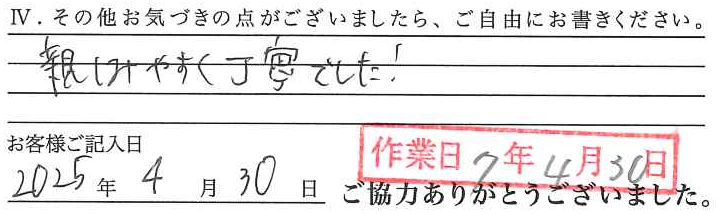 Ⅳ．その他お気づきの点がございましたら、ご自由にお書きください。
親しみやすく丁寧でした！
お客様ご記入日
作業日 7年4月30日
2025年 4月30日
ご協力ありがとうございました。